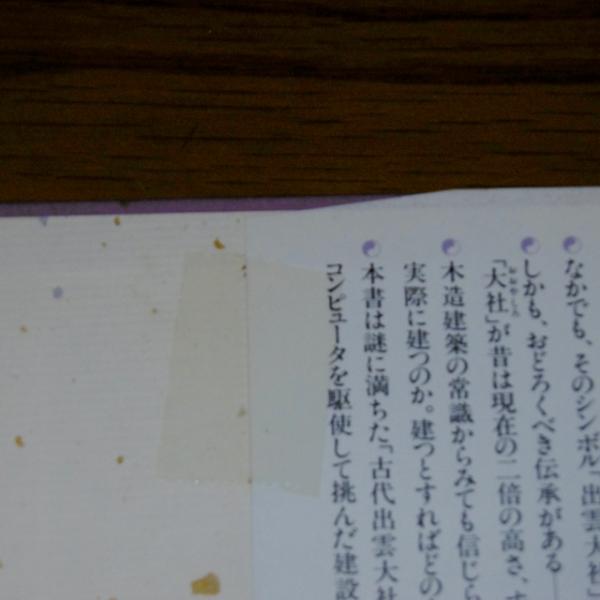 なかでも、そのシンボル「出雲大社」
しかも、おどろくべき伝承がある—
「大社」が昔は現在の二倍の高さ、
木造建築の常識からみても信じら
実際に建つのか。建つとすればどの
本書は謎に満ちた「古代出雲大社
コンピュータを駆使して挑んだ建設